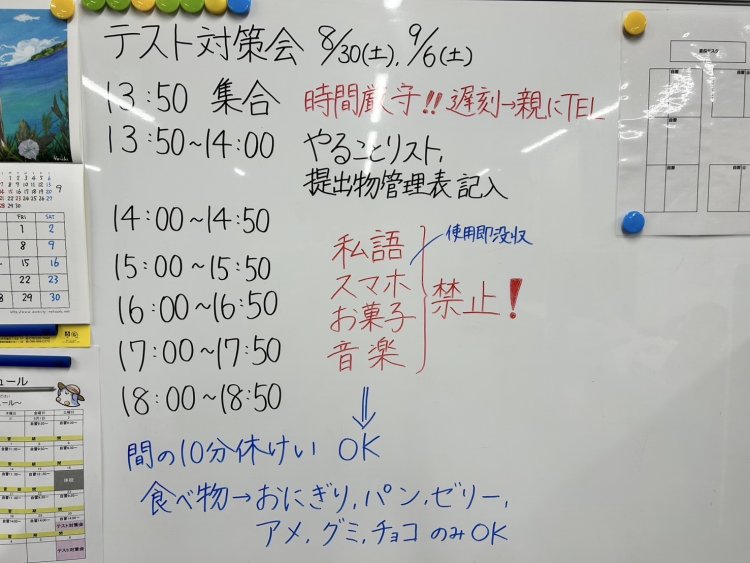 テスト対策会 8/30(土), 9/6(土)
13:50 集合 時間厳守!! 遅刻→親にTEL
13:50~14:00 やることリスト,
提出物管理表記入
14:00~14:50
15:00~15:50
16:00~16:50
17:00~17:50
18:00~18:50
私語
スマホ
お菓子
音楽
使用即没収
禁止!
間の10分休けい OK
食べ物→おにぎり,パン,ゼリー,
アメ,グミ,チョコ のみOK
9
FRI SAT
1 2
8 9
15 16
22 23
29 30
テスト対策会
テスト対策会